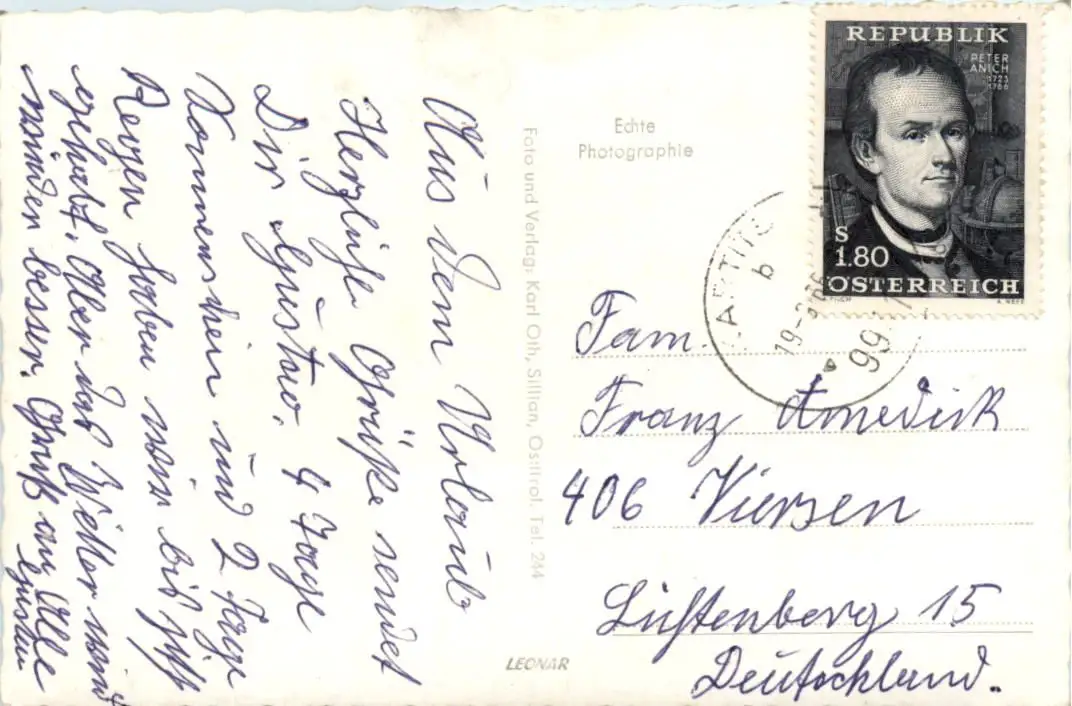 Aus dem Urlaub
Herzliche Grüße sendet
Dir Gustav. 4 Tage
Sonnenschein und 2 Tage
Regen haben wir bis jetzt
gehabt. Aber das Wetter wird
wieder besser. Gruß an Alle
Gustav
Foto und Verlag: Karl Oth, Sillian, Osttirol. Tel. 244
Echte
Photographie
LEONAR
REPUBLIK
PETER
ANICH
1723
1766
S
1.80
ÖSTERREICH
b
Fam.
Franz Amedick
406 Viersen
15
Deutschland.